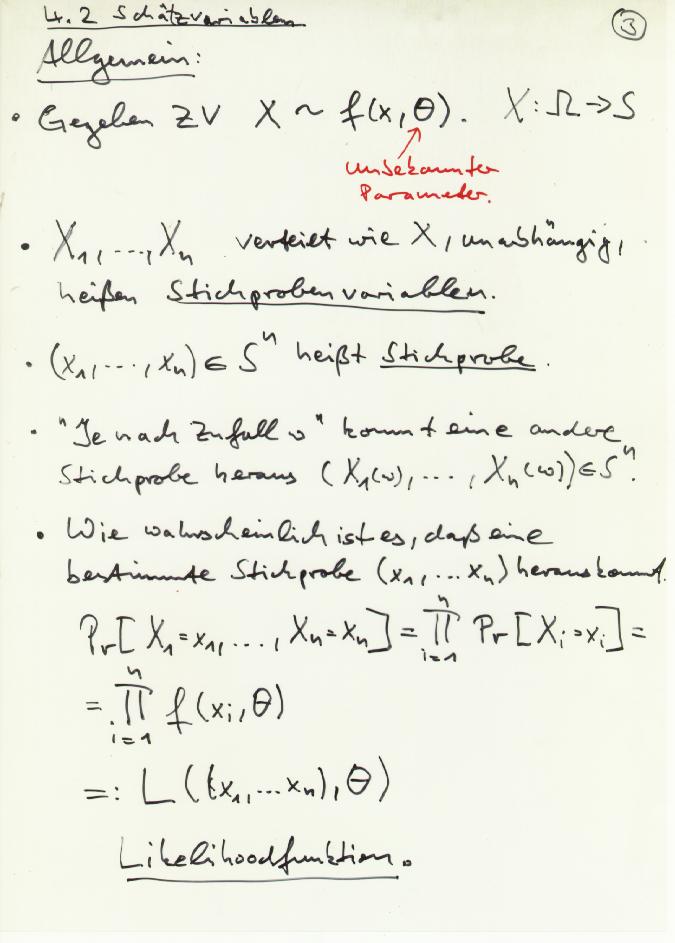 4.2 Schätzvariablen
③
Allgemein:
• Gegeben ZV X ~ f(x, θ). X: Ω → S
unbekannter
Parameter.
• X₁, ..., Xₙ verteilt wie X, unabhängig,
heißen Stichprobenvariablen.
• (x₁, ..., xₙ) ∈ Sⁿ heißt Stichprobe.
• "Je nach Zufall ω" kommt eine andere
Stichprobe heraus (X₁(ω), ..., Xₙ(ω)) ∈ Sⁿ.
• Wie wahrscheinlich ist es, daß eine
bestimmte Stichprobe (x₁, ... xₙ) herauskommt.
Pr[X₁=x₁, ..., Xₙ=xₙ] = ∏ⁿᵢ₌₁ Pr[Xᵢ=xᵢ] =
= ∏ⁿᵢ₌₁ f(xᵢ, θ)
=: L((x₁, ... xₙ), θ)
Likelihoodfunktion.